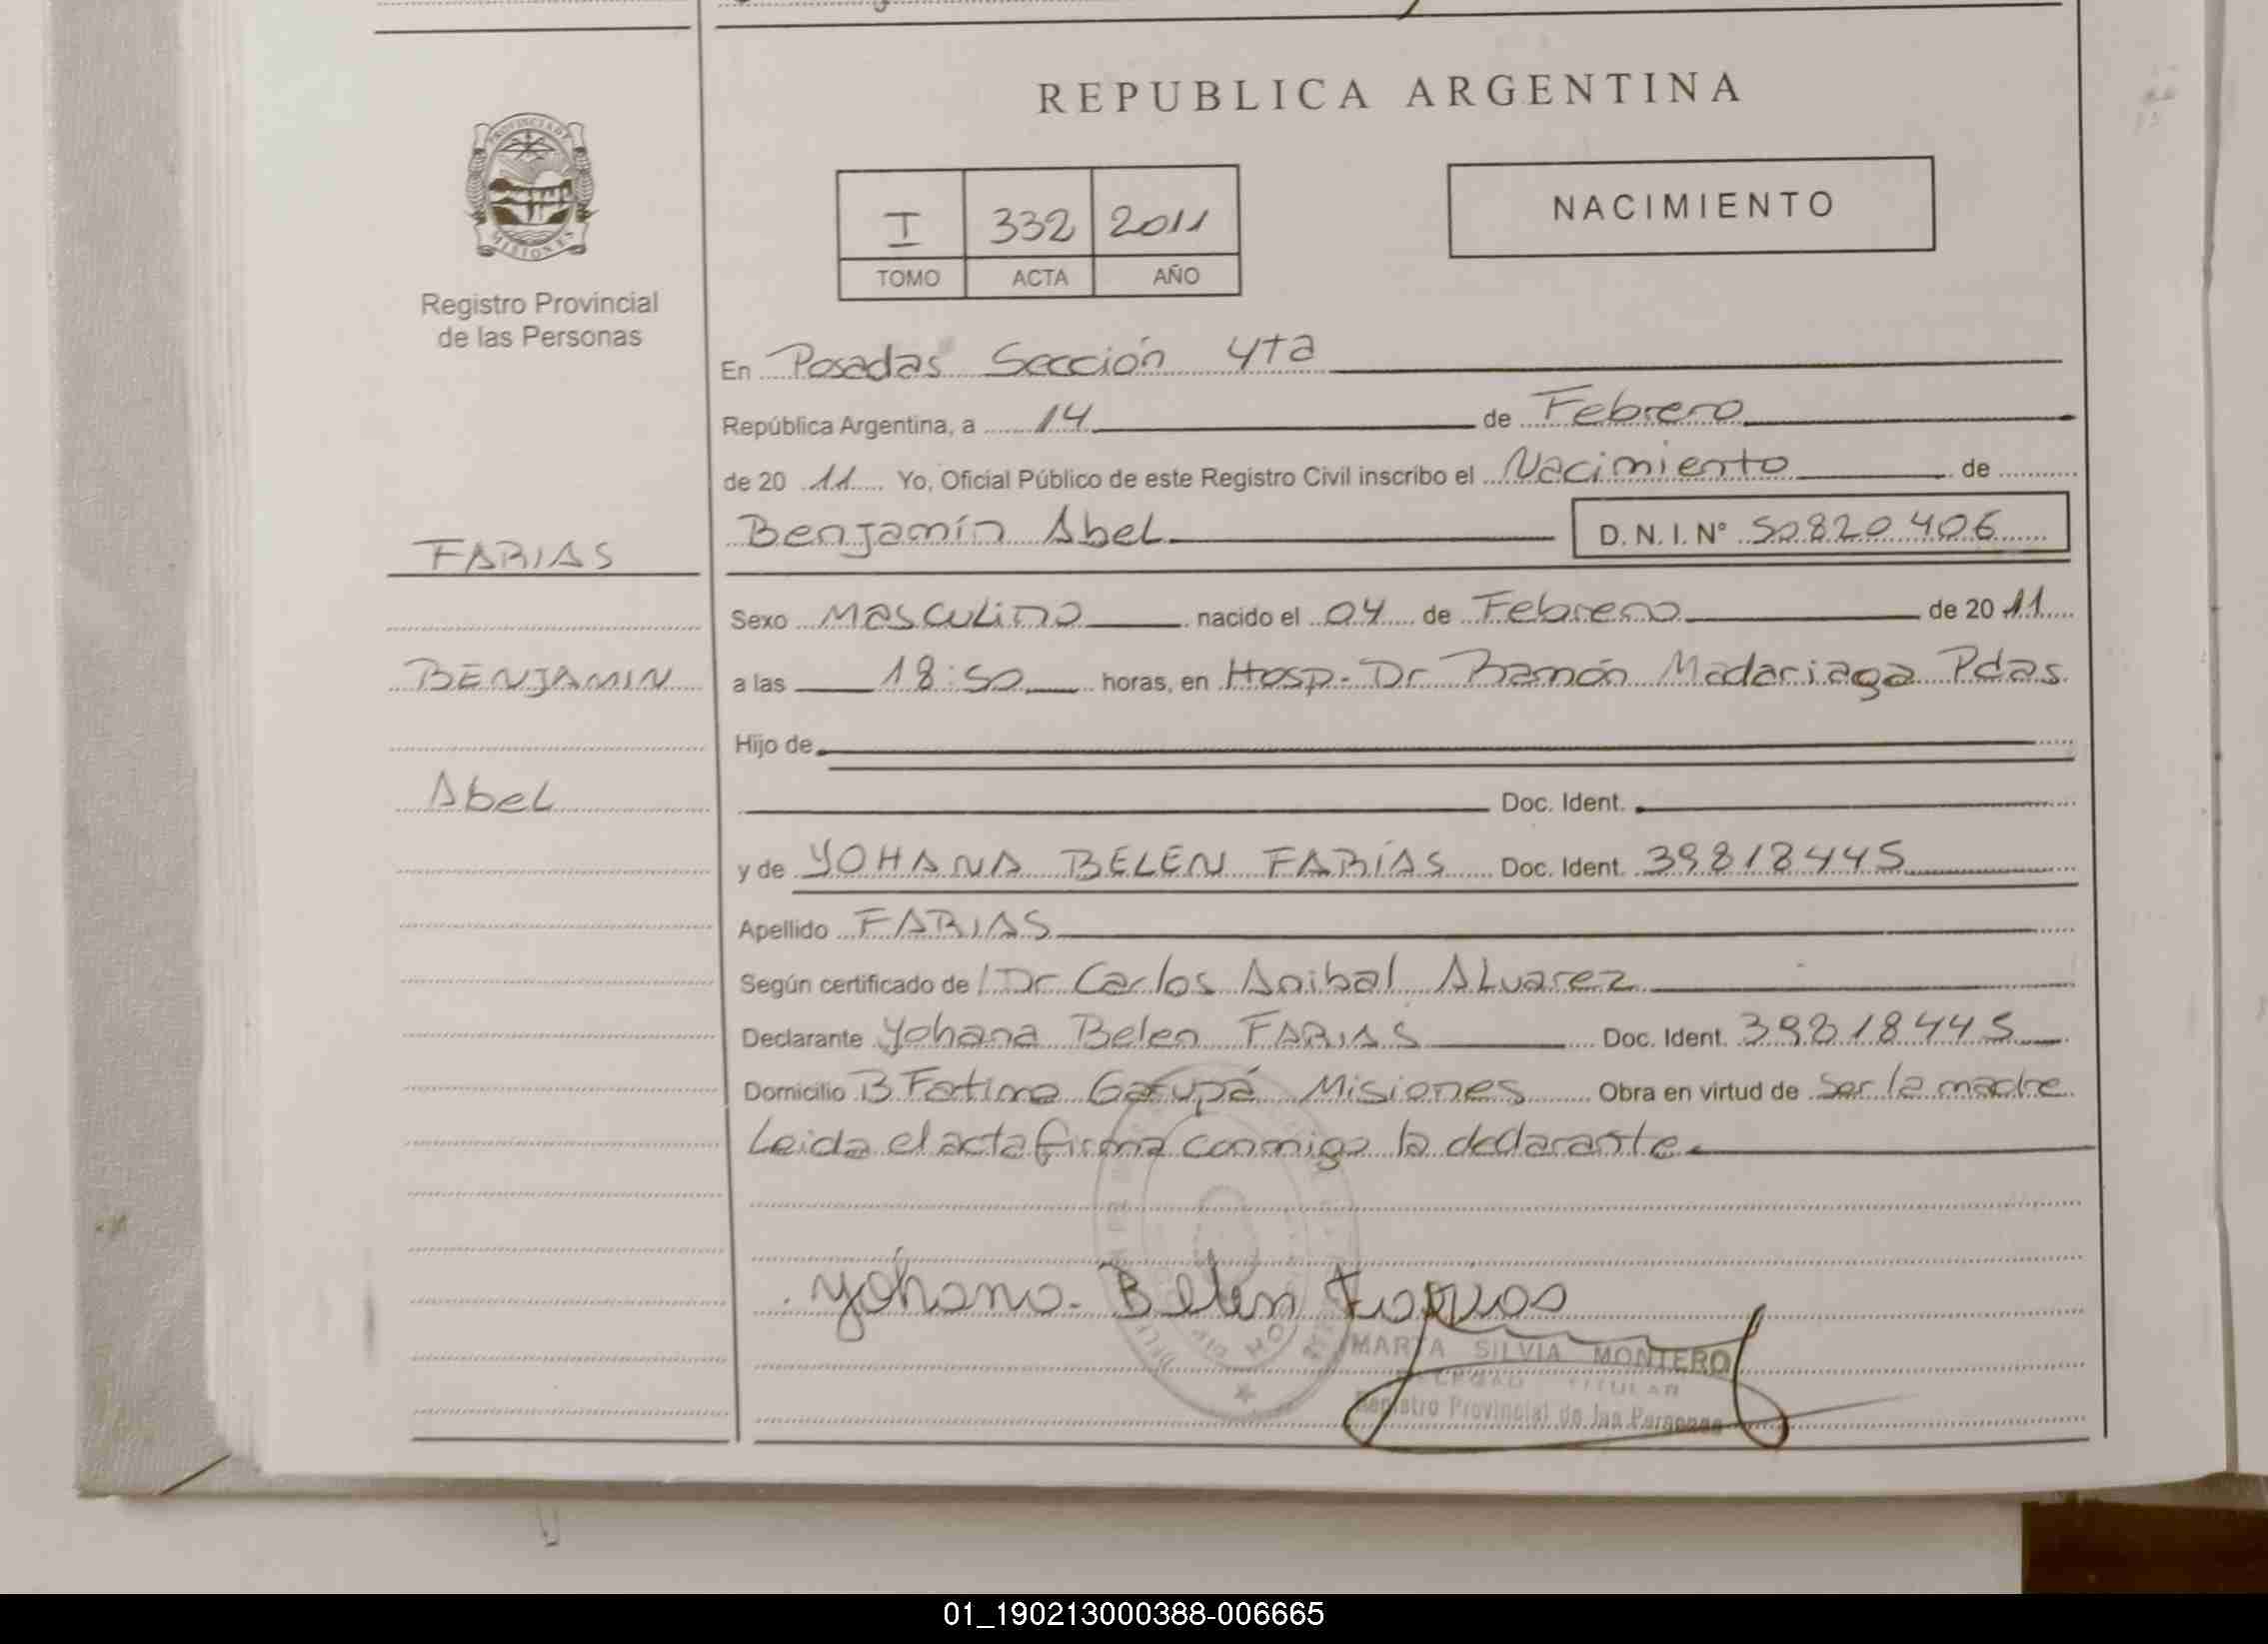 REPUBLICA ARGENTINA
PROVINCIA DE
MISIONES
Registro Provincial
de las Personas
I 332 2011
TOMO ACTA AÑO
NACIMIENTO
En Posadas Sección 4ta
República Argentina, a 14 de Febrero
de 20 11 Yo, Oficial Público de este Registro Civil inscribo el Nacimiento de
Benjamín Abel D. N. I. N° 50820406
FARIAS
Sexo Masculino nacido el 04 de Febrero de 20 11
BENJAMIN
a las 18:50 horas, en Hosp. Dr Ramón Madariaga Pdas.
Hijo de
Abel
Doc. Ident.
y de YOHANA BELEN FARÍAS Doc. Ident. 39818445
Apellido FARIAS
Según certificado de Dr Carlos Anibal Alvarez
Declarante Yohana Belen FARIAS Doc. Ident. 39818445
Domicilio B Fatima Garupá Misiones Obra en virtud de ser la madre
Leida el acta firma conmigo la declarante
Yohana Belen Farias
MARTA SILVIA MONTERO
TITULAR
Registro Provincial de las Personas
01_190213000388-006665